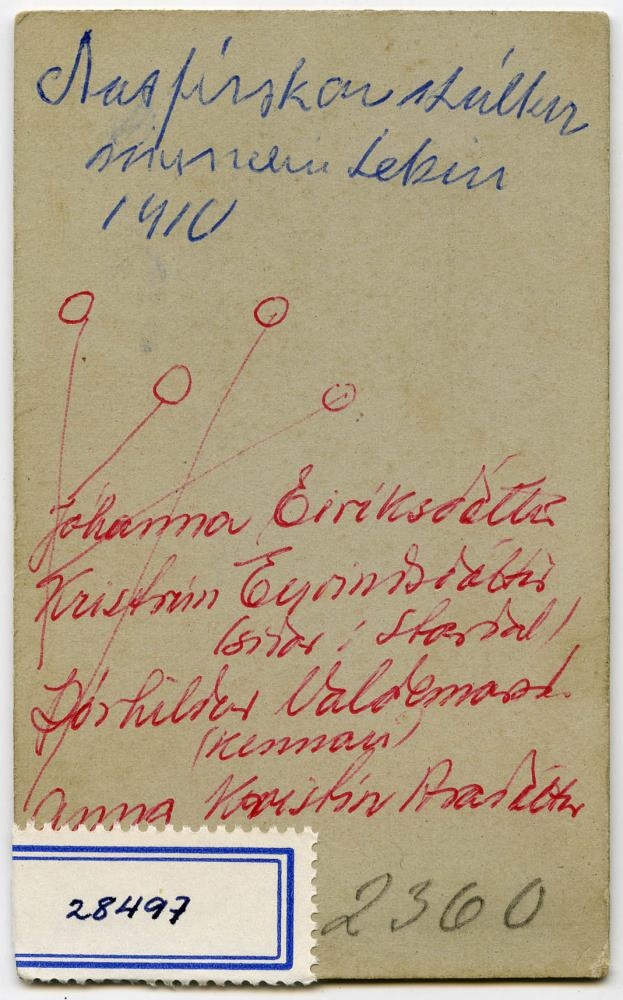 Austfirskar stúlkur
myndin tekin
1910
Jóhanna Eiríksdóttir
Kristrún Eyvindsdóttir
(síðar í Stardal)
Þórhildur Valdemarsd.
(kennari)
Anna Kristín Aradóttir
28497
2360